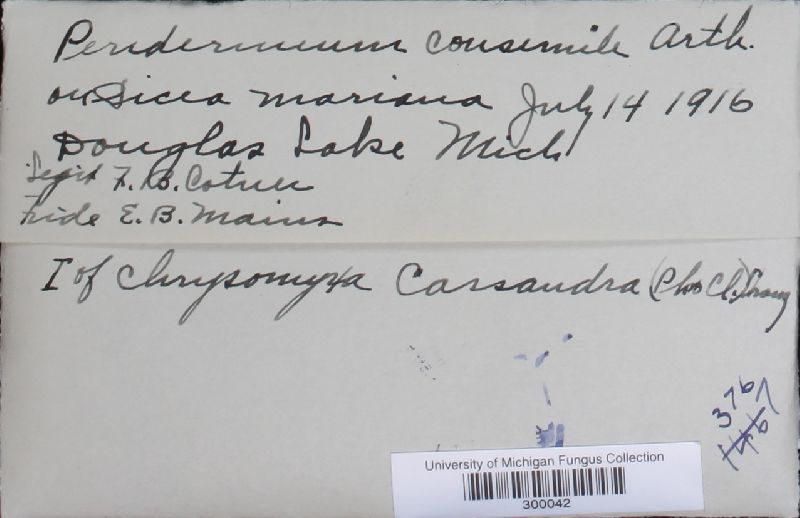 Peridermium consimile Arth.
on Picea mariana July 14 1916
Douglas Lake Mich
Legit F. B. Cotner
Fide E. B. Mains
I of Chrysomyxa Cassandra (Pk & Cl.) Tranz
376
1467
University of Michigan Fungus Collection
300042